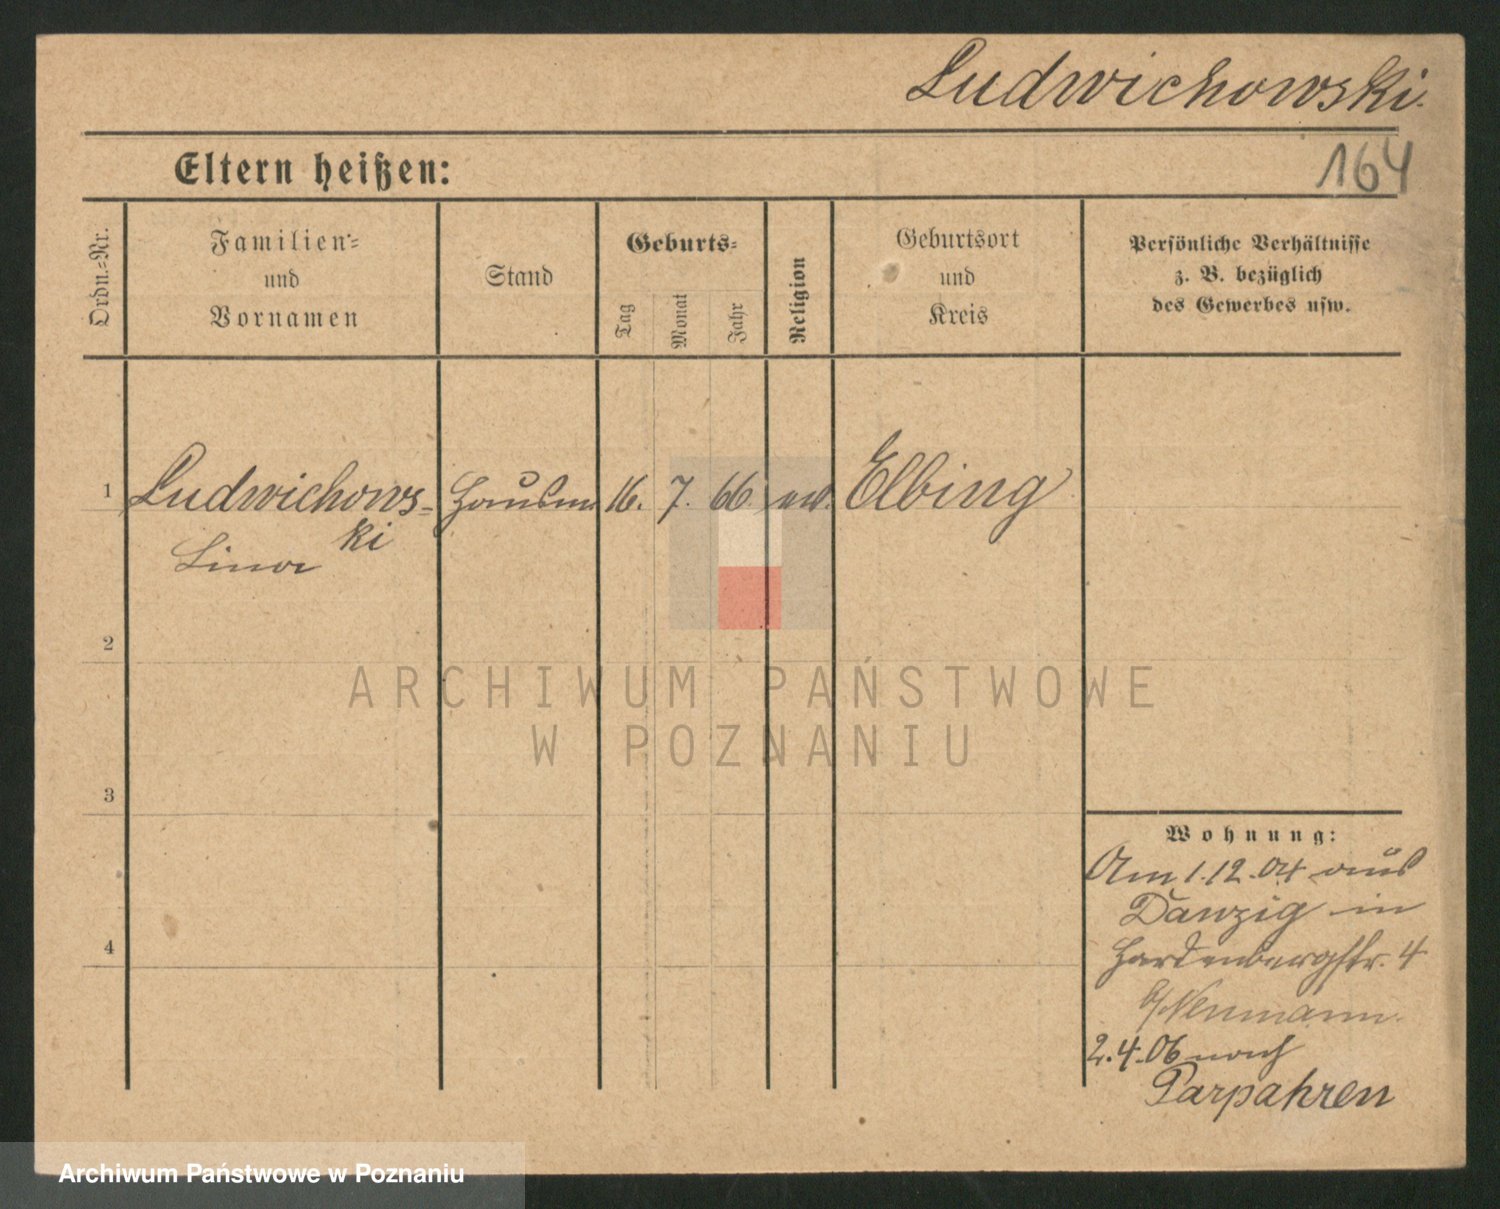 Ludwichowski.
164
Eltern heißen:
Ordn.-Nr.
Familien-
und
Vornamen
Stand
Geburts-
Tag
Monat
Jahr
Religion
Geburtsort
und
Kreis
Persönliche Verhältnisse
z. B. bezüglich
des Gewerbes usw.
1 Ludwichows- 16. 7. 66. Elbing
ki
Lina
2
3
4
Wohnung:
Am 1.12.04 aus
Danzig in
Hardenbergstr. 4
b/Neumann.
2.4.06 nach
Parpahren
ARCHIWUM PAŃSTWOWE
W POZNANIU
Archiwum Państwowe w Poznaniu